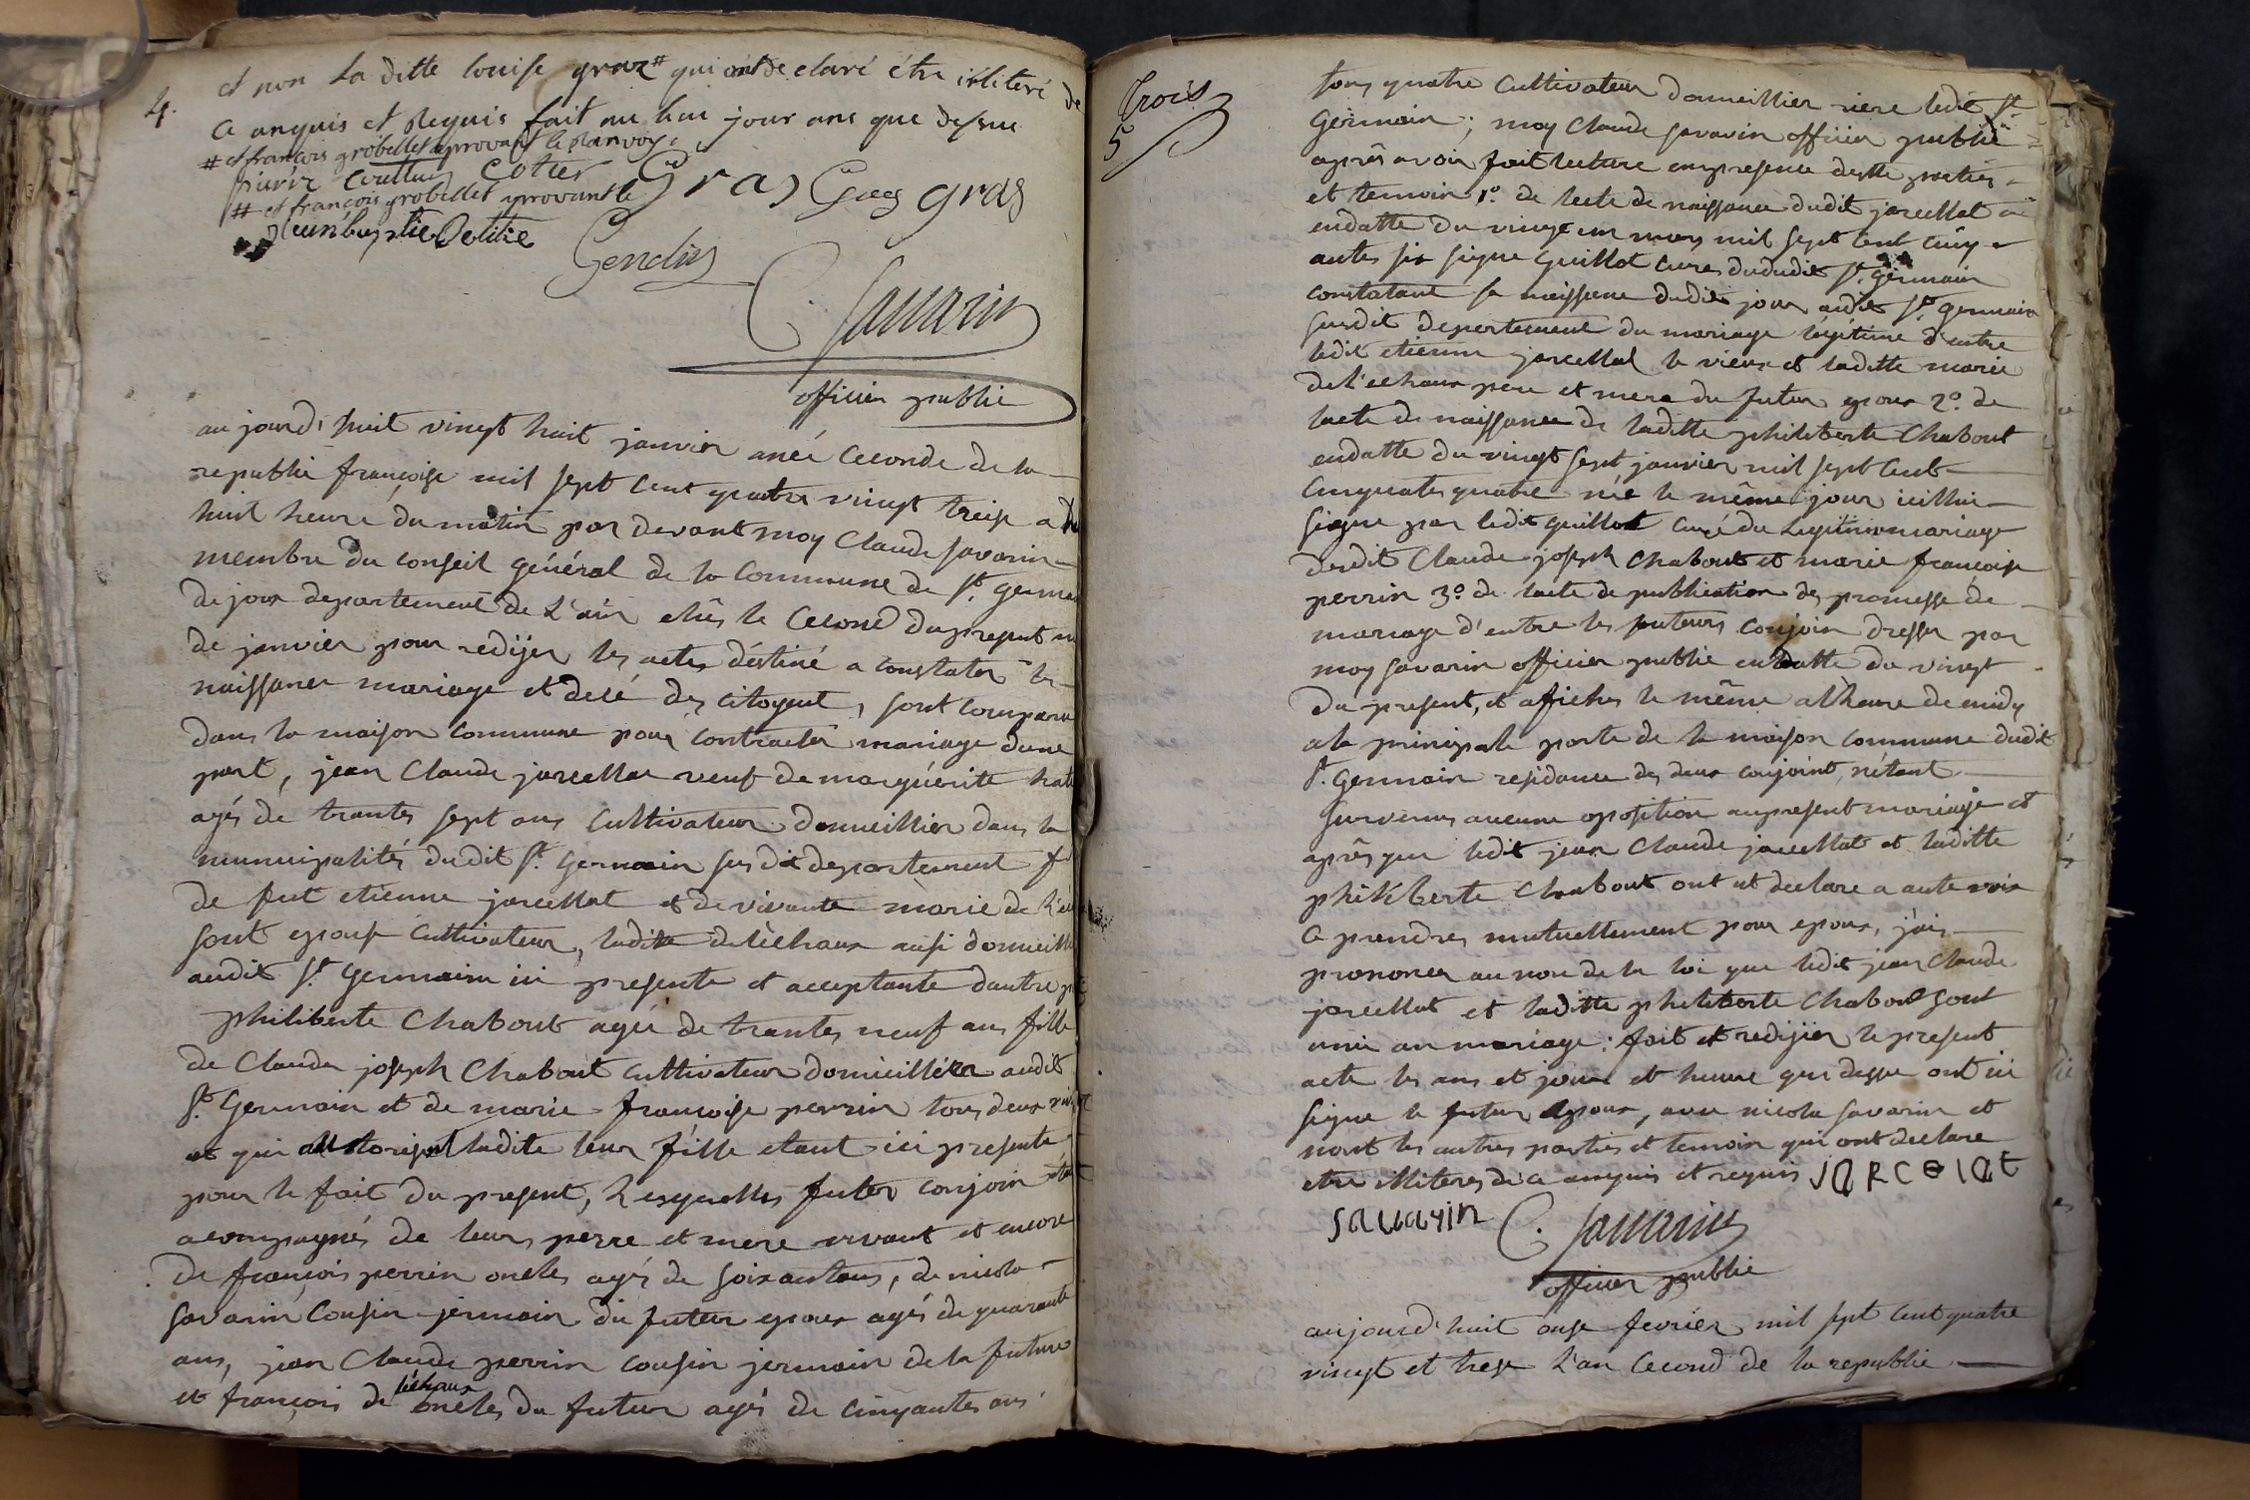 4.
et non la ditte louise graz # qui ont declaré étre illiteré de
ce anquis et Requis fait au lieu jour ans que desue
# et francois grobellet aprovant le ranvoy.
pierre couttier Cotter Gras Gras gras
# et françois grobellet aprovant le
jeunbaptiste Delilie
Gendin
C. Savarin
officier public
au jourd'huit vingt huit janvier aneé Ceconde de la
republie françoise mil sept cent quatre vingt treize a
huit heure du matin par devant moy Claude Savarin
membre du conseil général de la Commune de St. germai
de joux departement de L'ain elûs le Cecond du present
de janvier pour redijer les actes déstiné a constater les
naissance mariage et decé des citoyent, sont comparu
dans la maison Commune pour contracter mariage dune
part, jean Claude jarcellat veuf de marguérite
agés de trantes sept ans Cultivateur domicillier dans la
municipalités dudit St. germain susdit departement
de feut etienne jarcellat et de vivante marie de
sont epouse Cultivateur, ladite delèchaux ausi domicill
audit St. Germain ici presente et acceptante dautre
philiberte Chabout ageé de trantes neuf ans fille
de Claude joseph Chabout cultivateur domicillier audit
St. Germain et de marie françoise perrin tous deux
et qui authorisent ladite leur fille etant ici presente
pour le fait du present, Lesquelles futer conjoin
acompagnés de leurs perre et mere vivant et encore
de françois perrin oncles agés de soixantans, de nicola
Savarin Cousin jèrmain du futeur epoux agés de quarante
ans, jean Claude perrin cousin jermain de la future
lèchaux
et françois de oncles du futeur agés de cinqantes ans
Trois
5
tous quatre Cultivateur domicillier riere ledit St.
Germain; moy Claude Savarin officier public
aprês avoir fait lecture enpresence desttes parties
et temoin 1°. de lacte de naissance dudit jarcellat
endatte du vingt un mars mil sept cent cinq
antes six signe Guillot Cures dududit St. germain
constatant sa naissance dudit jour audit St. germain
susdit departement du mariage legitime d'entre
ledit etienne jarcellat le vieux et laditte marie
deléchaux pere et mere du futur epoux 2°. de
lacte de naissance de laditte philiberte Chabout
endatte du vingt sept janvier mil sept cent
Cinquantes quatre née le même jour icelluie
signe par ledit guillot curé du Legitime mariage
dudit Claude joseph Chabout et marie françoise
perrin 3°. de lacte de publication des promesse de
mariage d'entre les futeurs conjoin dresser par
moy Savarin officier public endatte du vingt
du present, et affiches le même alheure de midy
a la principale porte de la maison commune dudit
St. Germain residance des deux conjoint, nétant
survenus aucune oposition aupresent mariage et
après que ledit jean Claude jarcellat et laditte
philiberte Chabout ont ut declare a aute voix
ce prendre mutuellement pour epoux, jais
prononcer au nom de la loi que ledit jean Claude
jarcellat et laditte philiberte Chabout sont
unie an mariage; fait et redijier le present
acte les ans et jours et heure que dessue ont ici
signe le futeur epoux, avec nicola Savarin et
nont les autres parties et temoin qui ont declare
etre illiteres de ce anquis et requis JARCELAt
SAVARIN C. Savarin
officier public
aujourd'huit onze fevrier mil sept cent quatre
vingt et treze L'an Cecond de la republie